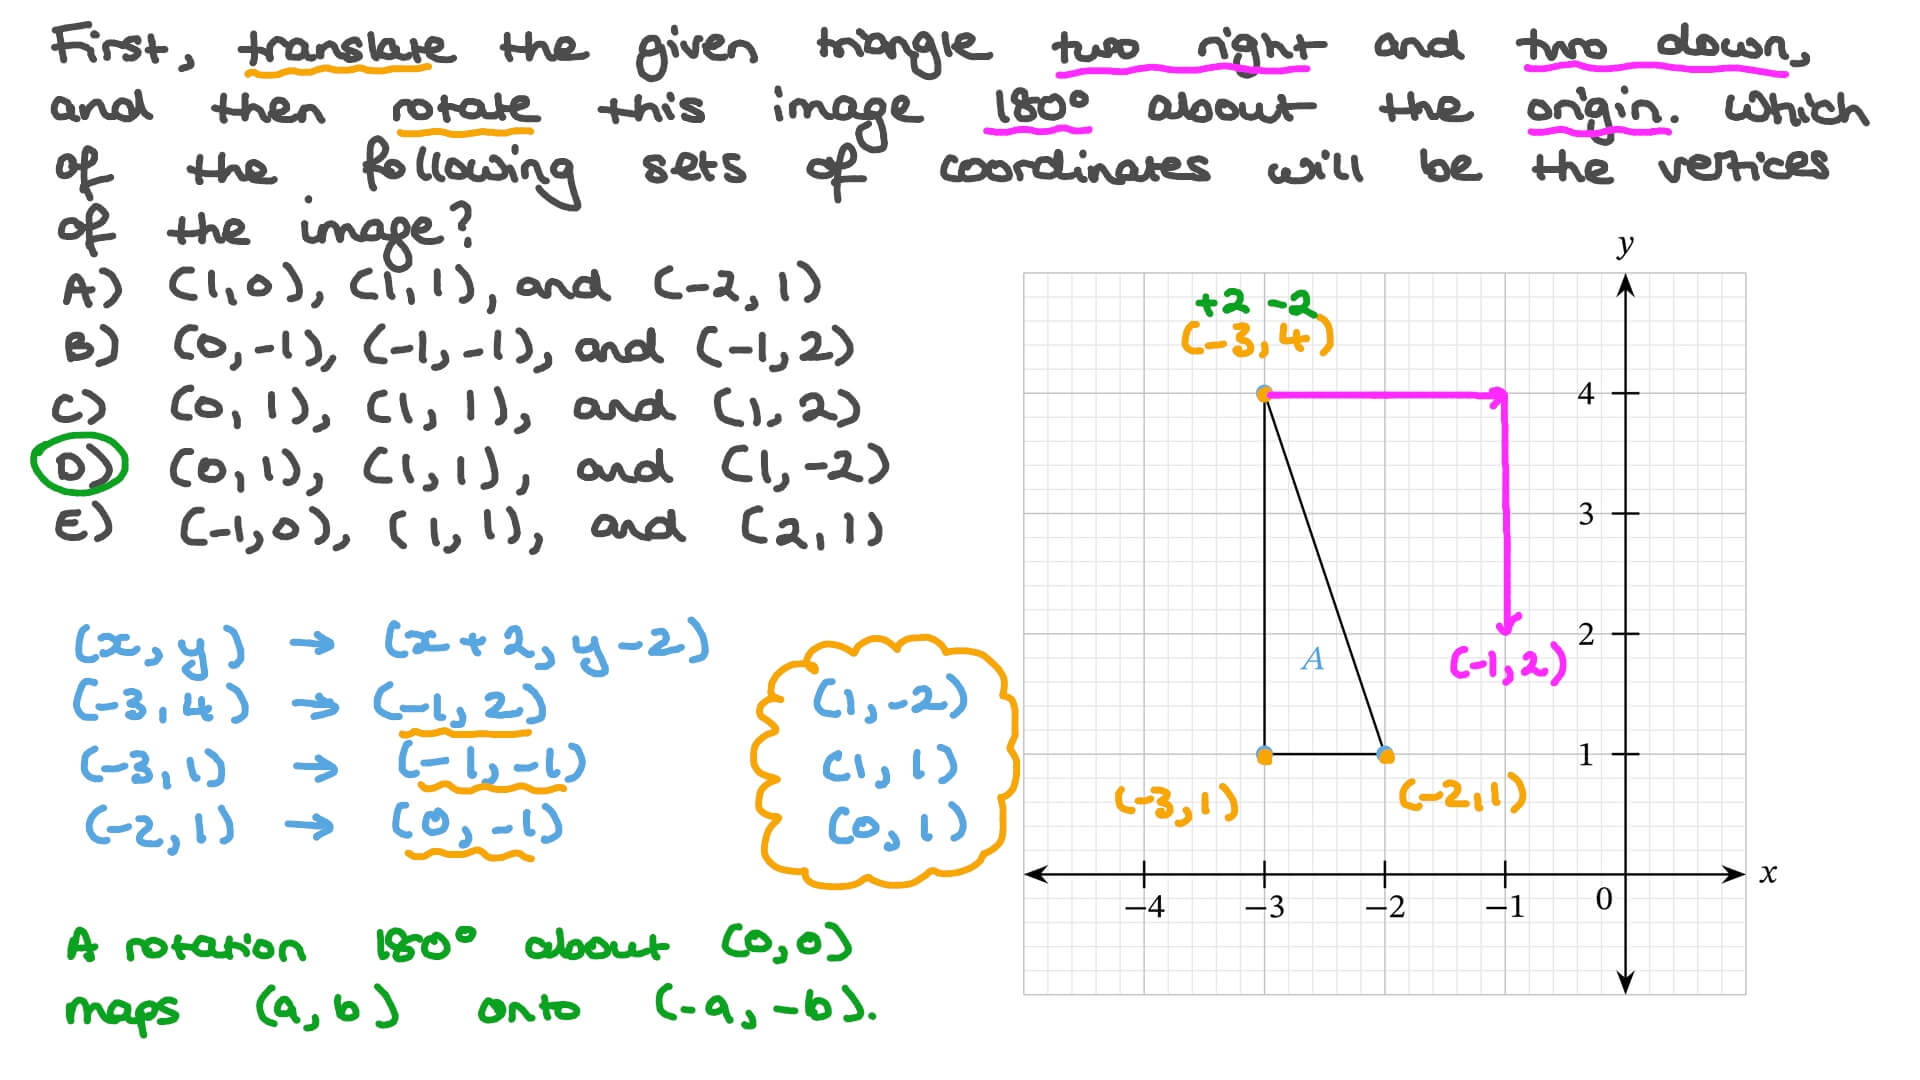 First, translate the given triangle two right and two down,
and then rotate this image 180° about the origin. Which
of the following sets of coordinates will be the vertices
of the image?
A) (1,0), (1,1), and (-2,1)
B) (0,-1), (-1,-1), and (-1,2)
C) (0,1), (1,1), and (1,2)
D) (0,1), (1,1), and (1,-2)
E) (-1,0), (1,1), and (2,1)
(x,y) → (x+2, y-2)
(-3,4) → (-1,2)
(-3,1) → (-1,-1)
(-2,1) → (0,-1)
(1,-2)
(1,1)
(0,1)
A rotation 180° about (0,0)
maps (a,b) onto (-a,-b).
y
+2 -2
(-3,4)
4
3
2
A
(-1,2)
1
(-3,1)
(-2,1)
x
−4 −3 −2 −1 0